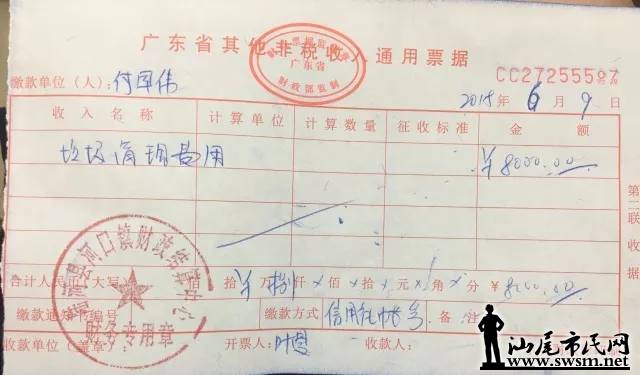 广东省其他非税收入通用票据
财政票据监制章
广东省
财政部监制
CC27255507
缴款单位（人）：付国伟
2015年6月9日
收入名称 计算单位 计算数量 征收标准 金额
垃圾清理费用 ¥8000.00
第二联 收据
合计人民币（大写） 佰拾¥万捌仟×佰×拾×元×角×分 ¥8000.00
缴款通知书编号 缴款方式 信用社 备注
收款单位（盖章）： 开票人：叶 收款人：
河口镇财政结算中心
财务专用章
汕尾市民网
www.swsm.net